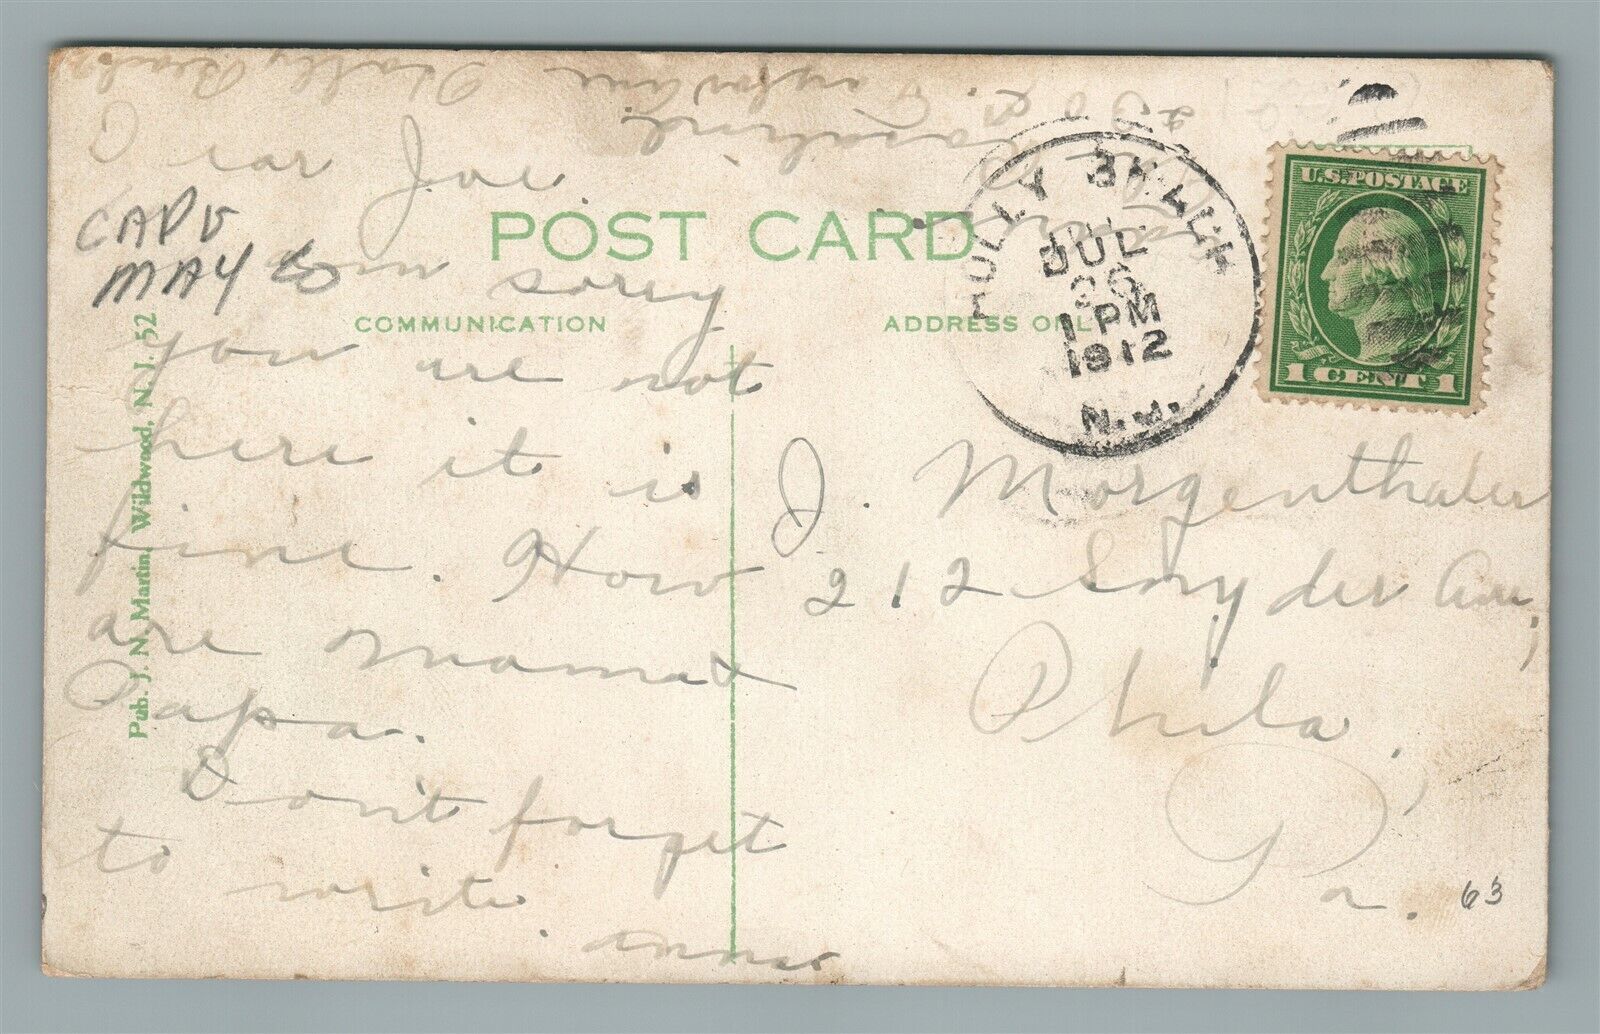 Dear Joe
CAPE
MAY Co
POST CARD
am sorry
COMMUNICATION
ADDRESS ONLY
you are not
here it is
fine. How
are mama +
Papa.
Don't forget
to write.
Anna
Pub. J. N. Martin, Wildwood, N. J. 52
HOLLY BEACH
JUL
26
1 PM
1912
N.J.
U.S. POSTAGE
1 CENT 1
J. Morgenthaler
212 Snyder Ave,
Phila,
Pa.
63
Holly Beach